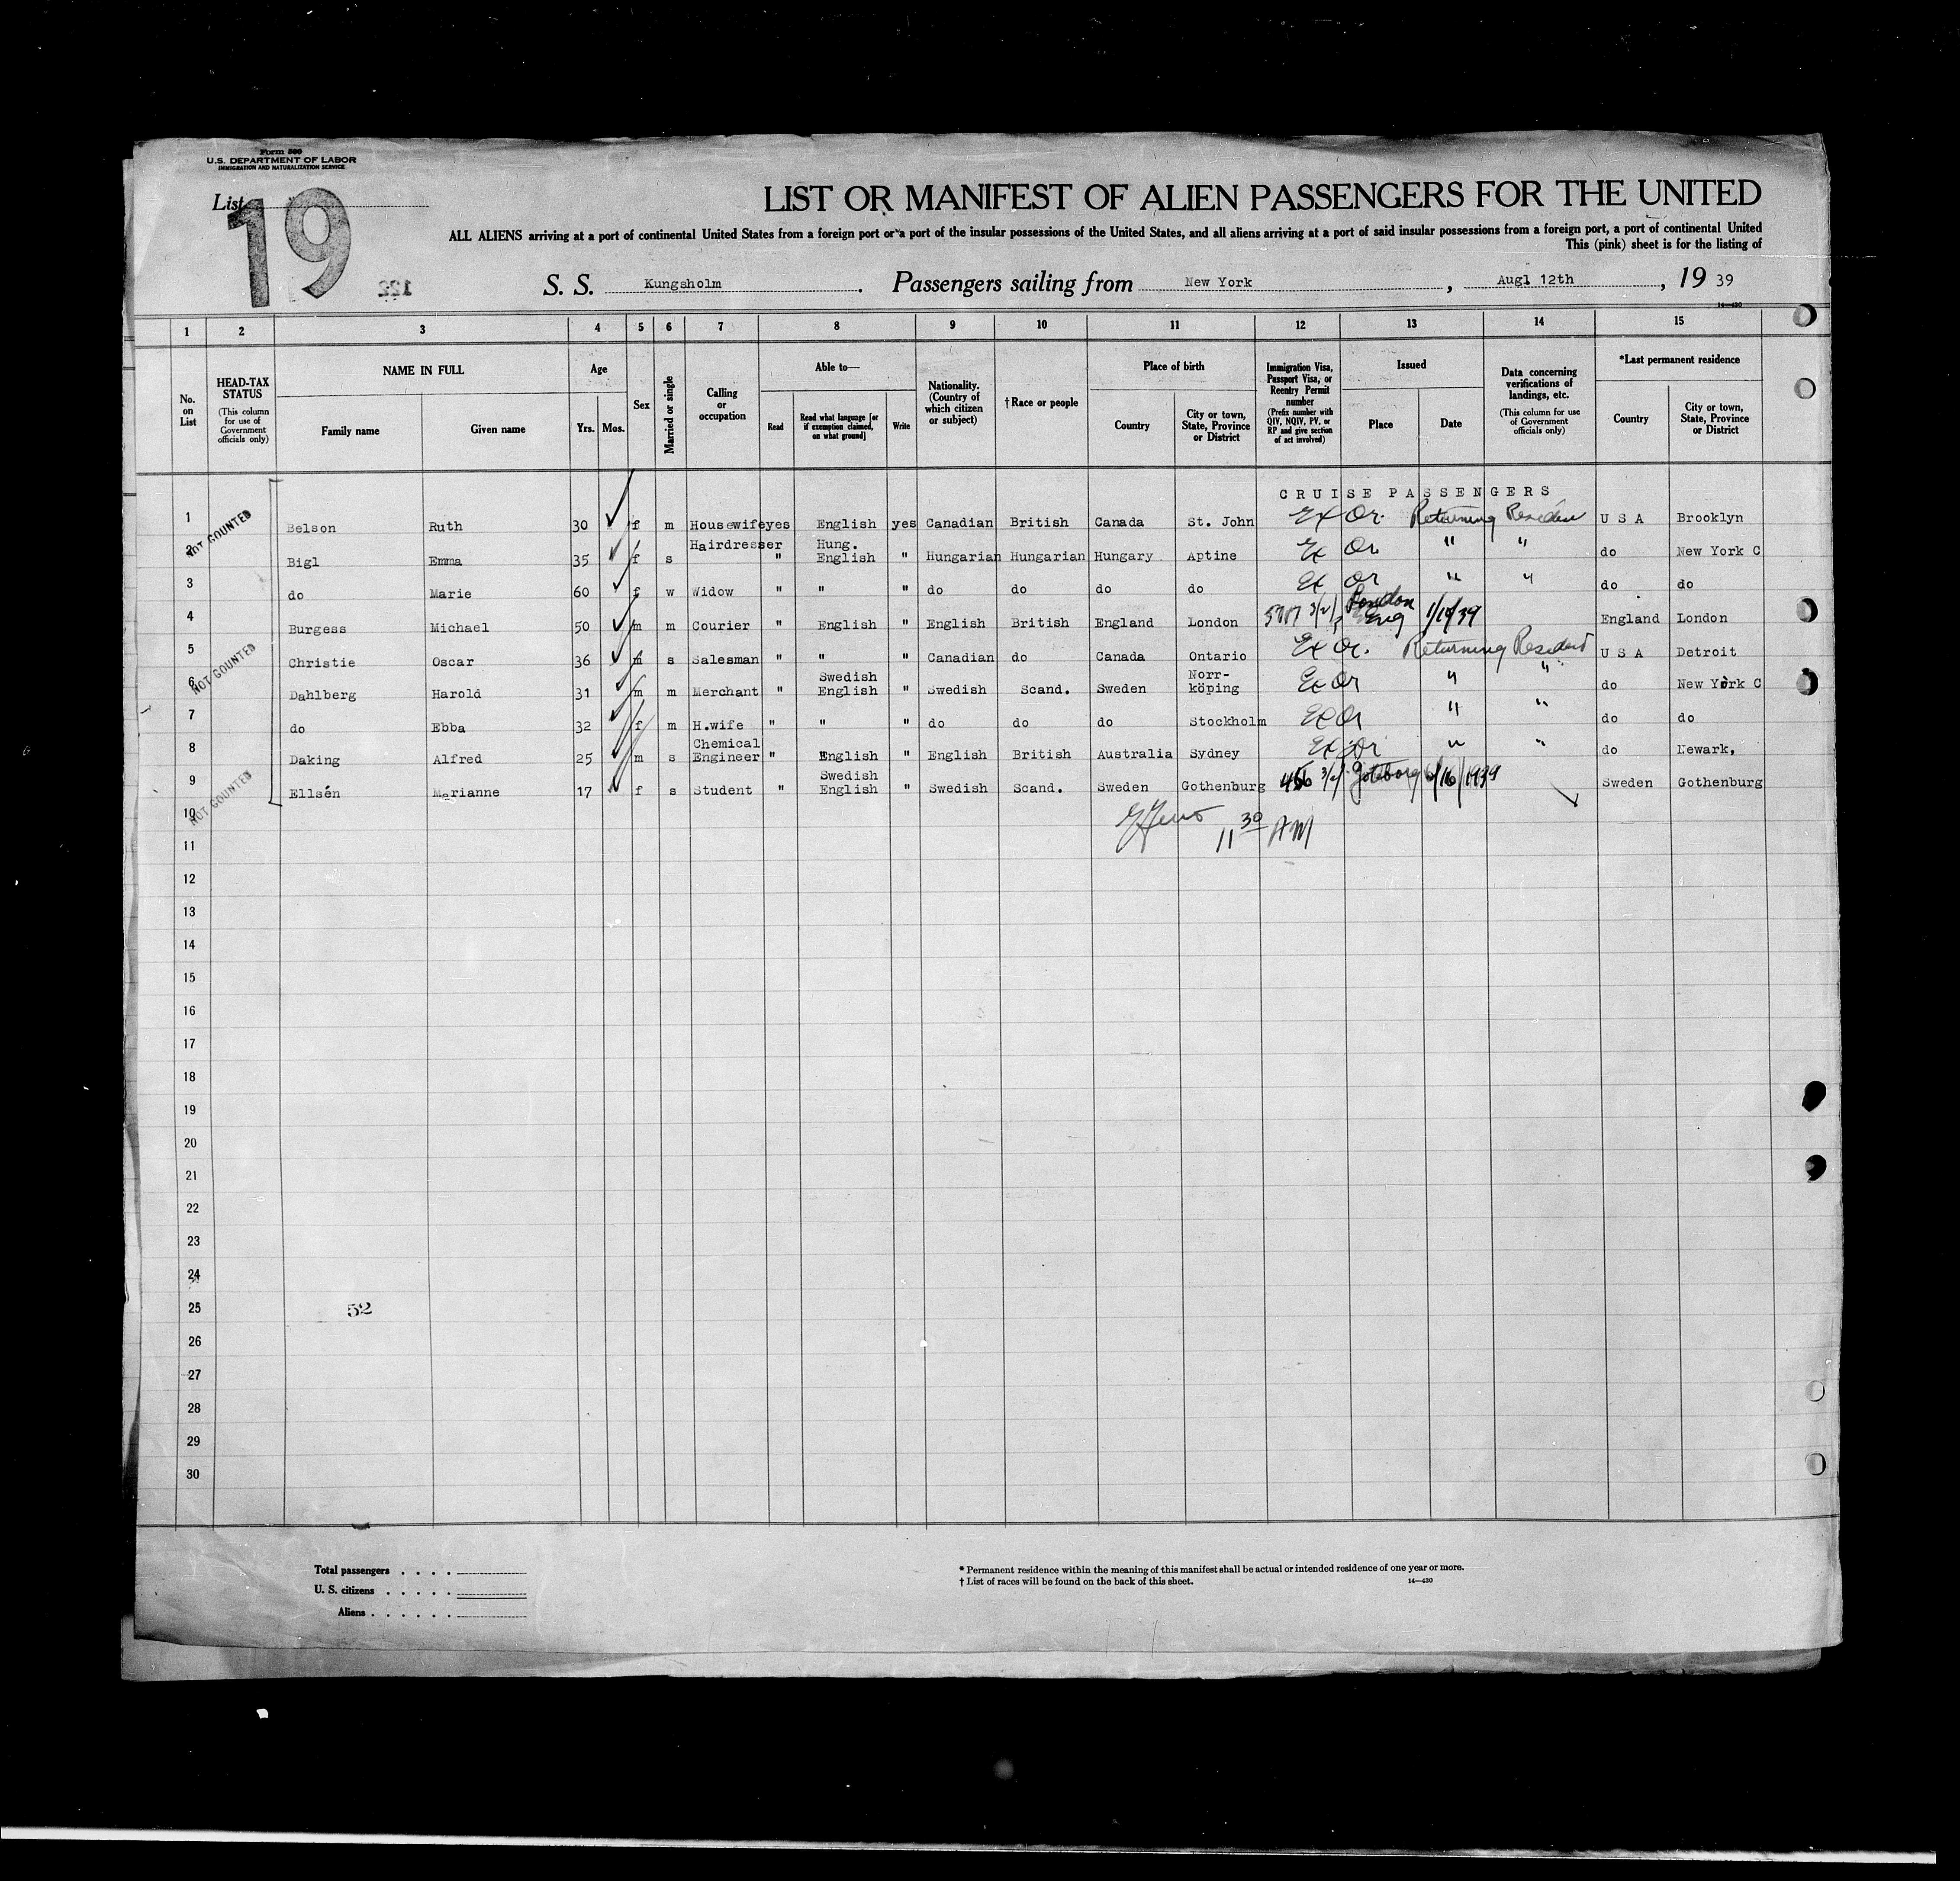 Form 500
U.S. DEPARTMENT OF LABOR
IMMIGRATION AND NATURALIZATION SERVICE
List 19
LIST OR MANIFEST OF ALIEN PASSENGERS FOR THE UNITED
ALL ALIENS arriving at a port of continental United States from a foreign port or a port of the insular possessions of the United States, and all aliens arriving at a port of said insular possessions from a foreign port, a port of continental United
This (pink) sheet is for the listing of
122
S. S. Kungsholm. Passengers sailing from New York, Augl 12th, 19 39
14—430
1 2 3 4 5 6 7 8 9 10 11 12 13 14 15
No. on List
HEAD-TAX STATUS (This column for use of Government officials only)
NAME IN FULL
Family name Given name
Age
Yrs. Mos.
Sex
Married or single
Calling or occupation
Able to—
Read Read what language [or if exemption claimed, on what ground] Write
Nationality. (Country of which citizen or subject)
†Race or people
Place of birth
Country City or town, State, Province or District
Immigration Visa, Passport Visa, or Reentry Permit number (Prefix number with QIV, NQIV, PV, or RP and give section of act involved)
Issued
Place Date
Data concerning verifications of landings, etc. (This column for use of Government officials only)
*Last permanent residence
Country City or town, State, Province or District
CRUISE PASSENGERS
NOT COUNTED
1 Belson Ruth 30 f m Housewife yes English yes Canadian British Canada St. John Ex Or. Returning Resident U S A Brooklyn
2 Bigl Emma 35 f s Hairdresser " Hung. English " Hungarian Hungarian Hungary Aptine Ex Or " " do New York C
3 do Marie 60 f w Widow " " " do do do do Ex Or " " do do
4 Burgess Michael 50 m m Courier " English " English British England London 3/2 London Eng 1/19/39 England London
NOT COUNTED
5 Christie Oscar 36 m s Salesman " " " Canadian do Canada Ontario Ex Or. Returning Resident U S A Detroit
6 Dahlberg Harold 31 m m Merchant " Swedish English " Swedish Scand. Sweden Norr-köping Ex Or " " do New York C
7 do Ebba 32 f m H.wife " " " do do do Stockholm Ex Or " " do do
8 Daking Alfred 25 m s Chemical Engineer " English " English British Australia Sydney Ex Or " " do Newark,
NOT COUNTED
9 Ellsén Marianne 17 f s Student " Swedish English " Swedish Scand. Sweden Gothenburg 3/2 Göteborg 6/16/1939 Sweden Gothenburg
10 11 30 AM
11
12
13
14
15
16
17
18
19
20
21
22
23
24
25 52
26
27
28
29
30
Total passengers . . . .
U. S. citizens . . . . .
Aliens . . . . . .
* Permanent residence within the meaning of this manifest shall be actual or intended residence of one year or more.
† List of races will be found on the back of this sheet. 14—430